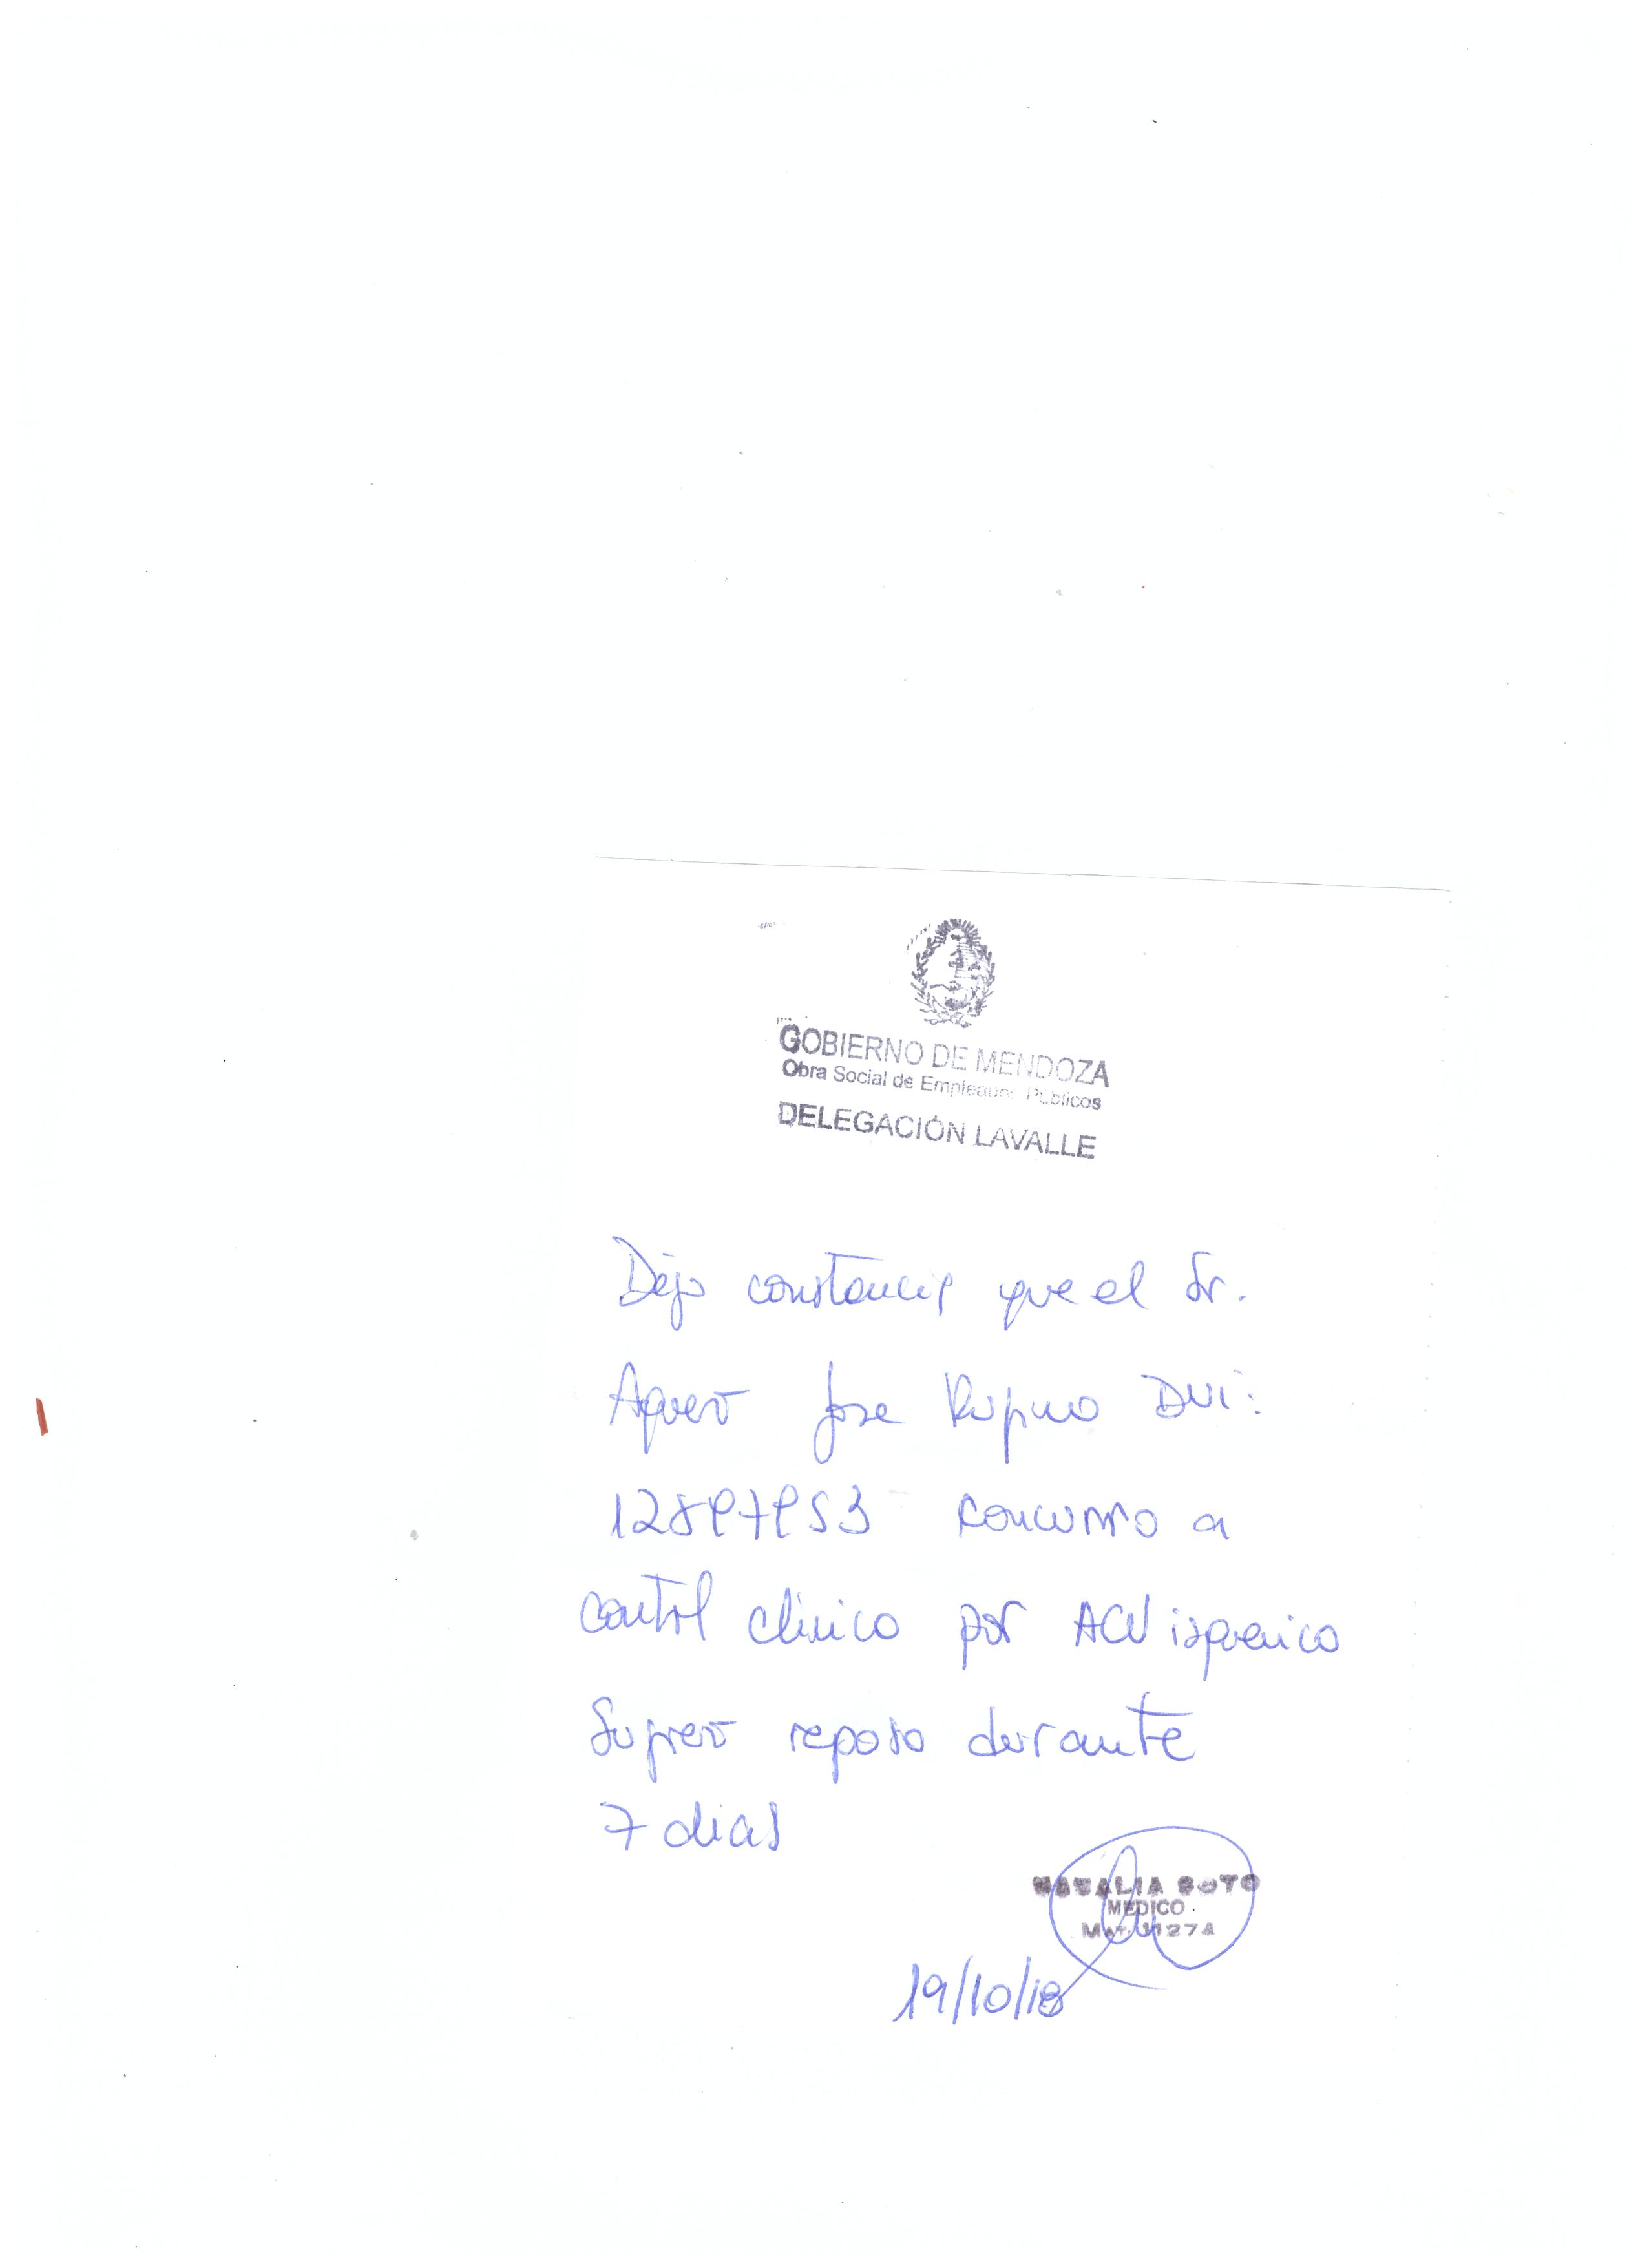 GOBIERNO DE MENDOZA
Obra Social de Empleados Públicos
DELEGACIÓN LAVALLE
Dejo constancia que el Sr.
Aguero Jose Rufino DNI:
12897953 concurrio a
control clinico por ACV isquemico
Sugiero reposo durante
7 dias
NATALIA SOTO
MEDICO
Mat. 11274
19/10/18